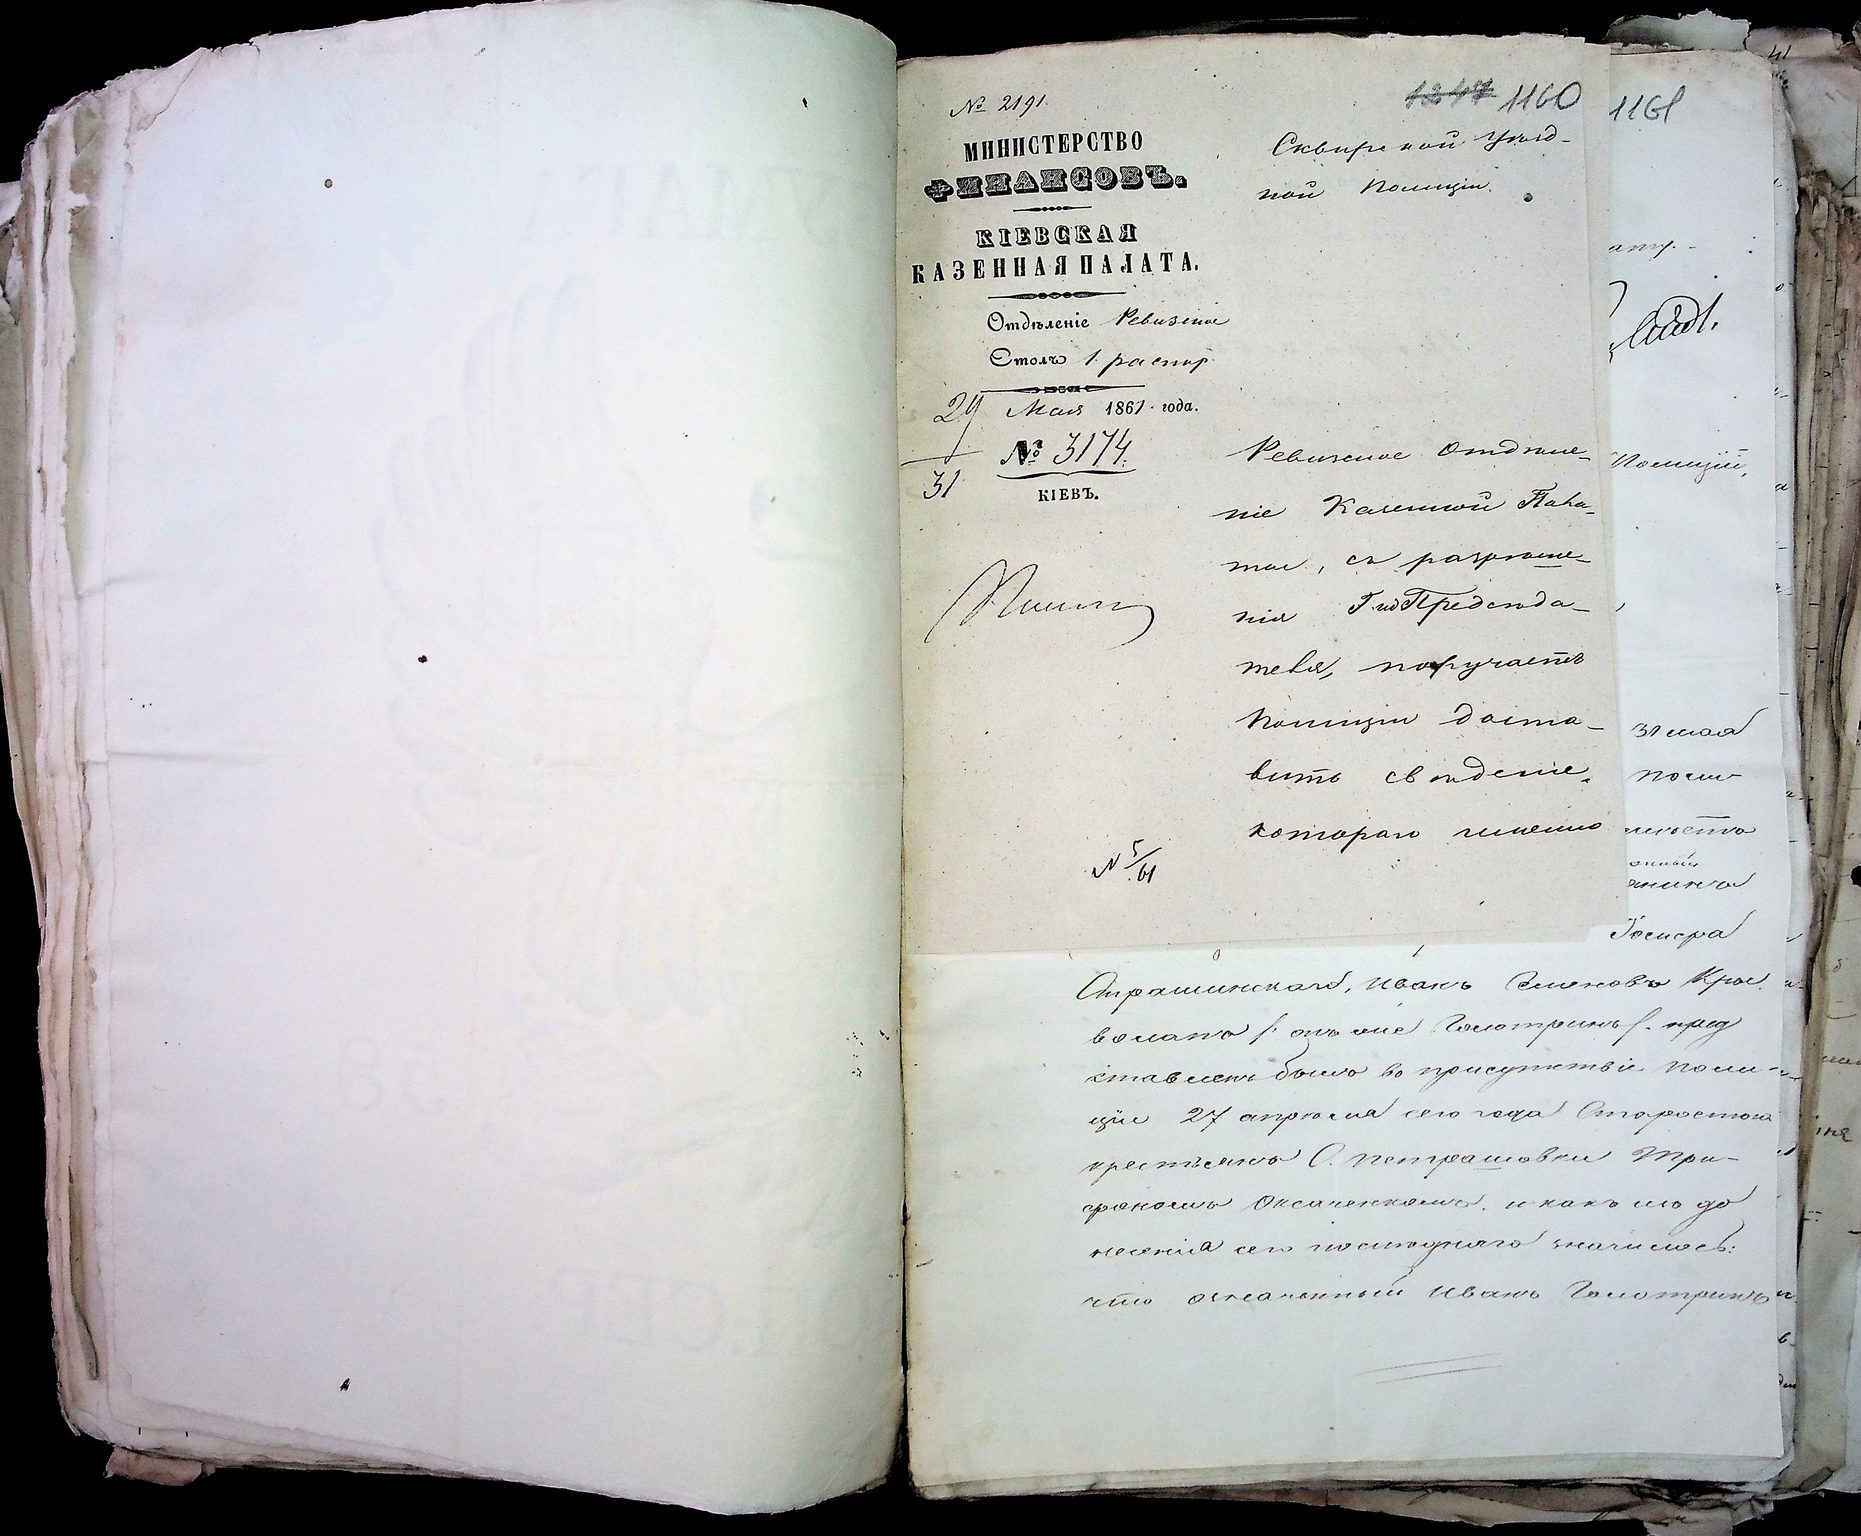 № 2191.
1247 1160
1161
МИНИСТЕРСТВО
ФИНАНСОВЪ.
КІЕВСКАЯ
КАЗЕННАЯ ПАЛАТА.
Отдѣленіе Ревизское
Столъ 1. распор.
29 Мая 1861. года.
№ 3174.
31
КІЕВЪ.
№ 5/61
Сквирской Уѣзд-
ной Полиціи.
Ревизское Отдѣле-
ніе Казенной Пала-
ты, съ разрѣше-
нія Г. Предсѣда-
теля, поручаетъ
Полиціи доста-
вить свѣденіе,
котораго именно
Полиціи,
31 мая
Поли-
Госифа
Страшинскаго, Иванъ Семеновъ
Голотринъ пред
ставленъ былъ въ присутствіе Поли-
ціи 27 апрѣля сего года Старостою
крестьянъ С. Петрашовки Три-
фономъ и какъ изъ до
несенія сего послѣдняго значилось:
что означенный Иванъ Голотринъ